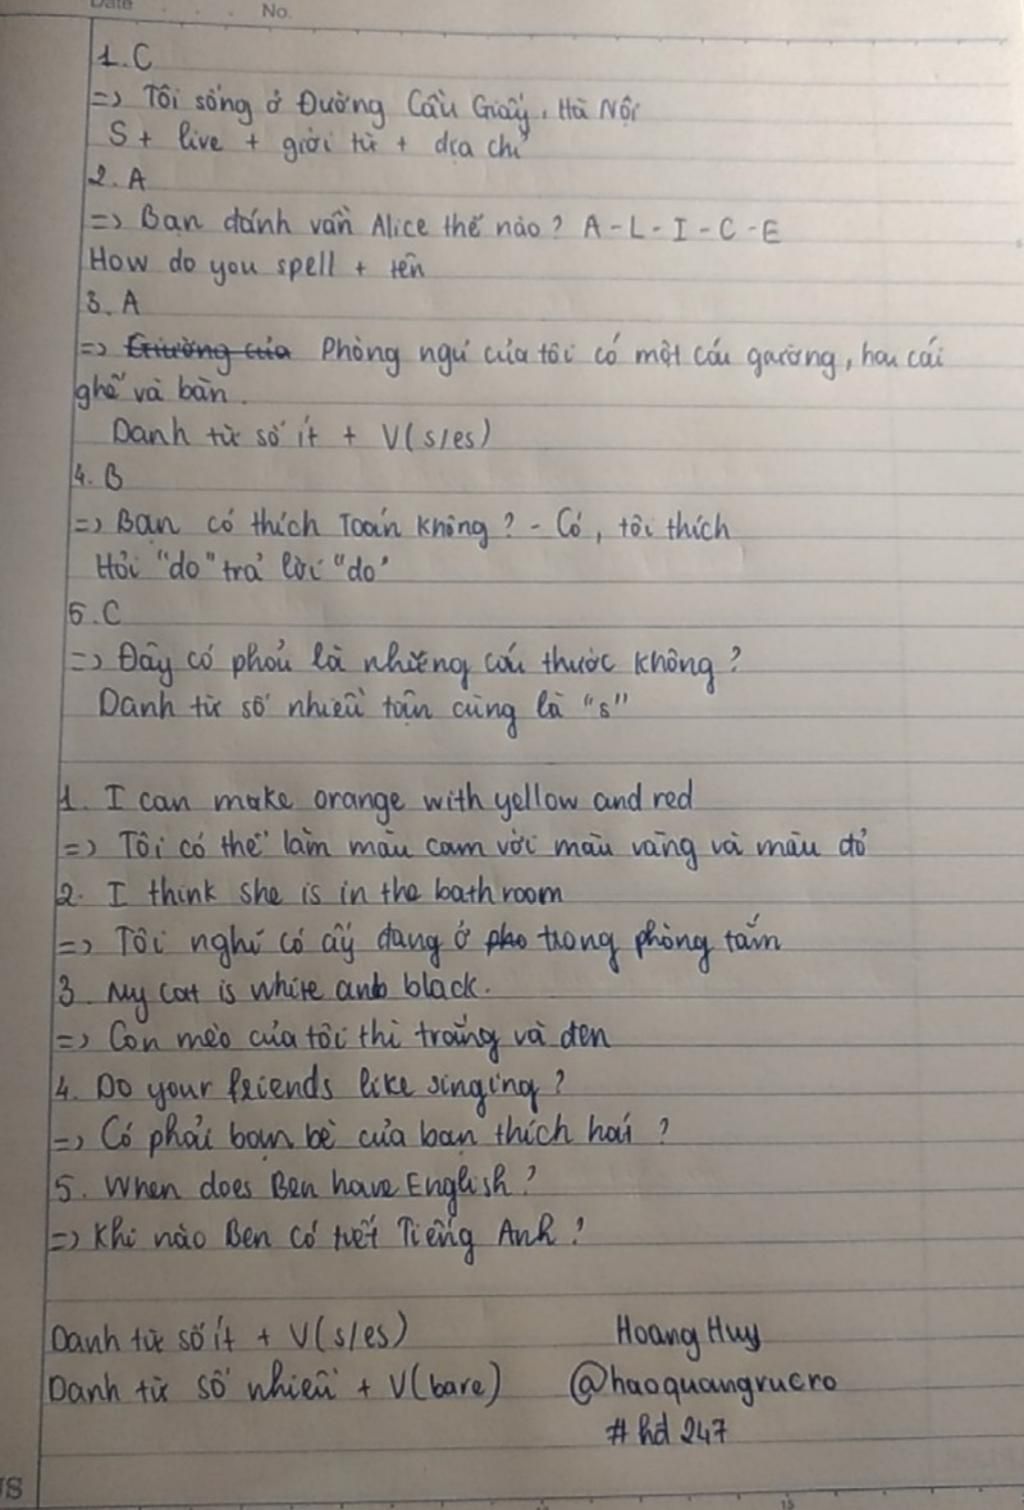 Date No.
1. C
=> Tôi sống ở Đường Cầu Giấy, Hà Nội
S + live + giới từ + địa chỉ
2. A
=> Bạn đánh vần Alice thế nào? A-L-I-C-E
How do you spell + tên
3. A
=> Giường của Phòng ngủ của tôi có một cái gương, hai cái
ghế và bàn.
Danh từ số ít + V(s/es)
4. B
=> Bạn có thích Toán không? - Có, tôi thích
Hỏi "do" trả lời "do"
5. C
=> Đây có phải là những cái thước không?
Danh từ số nhiều tận cùng là "s"
1. I can make orange with yellow and red
=> Tôi có thể làm màu cam với màu vàng và màu đỏ
2. I think she is in the bathroom
=> Tôi nghĩ cô ấy đang ở pho trong phòng tắm
3. My cat is white and black.
=> Con mèo của tôi thì trắng và đen
4. Do your friends like singing?
=> Có phải bạn bè của bạn thích hát?
5. When does Ben have English?
=> Khi nào Ben có tiết Tiếng Anh?
Danh từ số ít + V(s/es) Hoang Huy
Danh từ số nhiều + V(bare) @haoquangrucro
#hd247